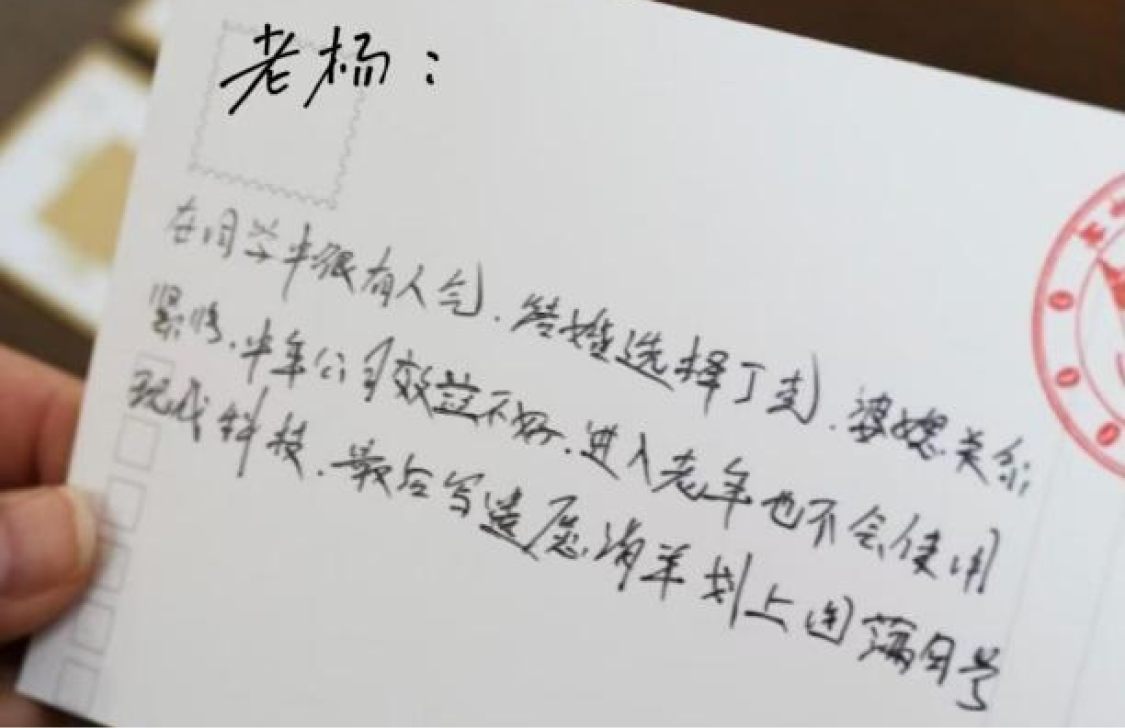 老杨：
在同学中很有人气.结婚选择丁克.婆媳关系
紧张.半年公司效益不好.进入老年也不会使用
现代科技.最后写遗愿清单划上圆满句号